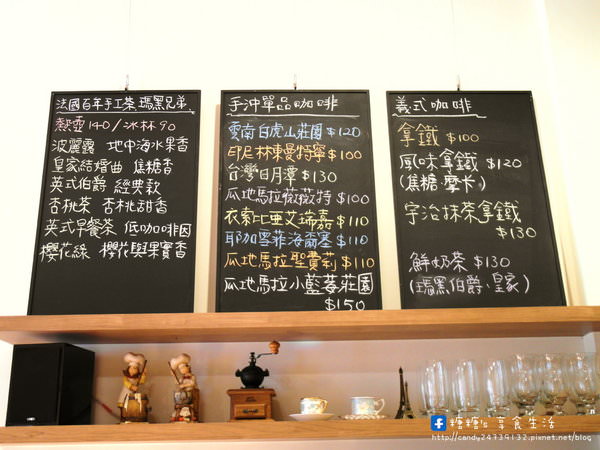 法國百年手工茶 瑪黑兄弟
熱壺 140 / 冰杯 90
波麗露 地中海水果香
皇家結婚曲 焦糖香
英式伯爵 經典款
杏桃茶 杏桃甜香
英式早餐茶 低咖啡因
櫻花綠 櫻花與果實香
手沖單品咖啡
雲南白虎山莊園 $120
印尼林東曼特寧 $100
台灣日月潭 $130
瓜地馬拉薇薇特 $100
衣索比亞艾瑞嘉 $110
耶加雪菲海爾塞 $110
瓜地馬拉聖費莉 $110
瓜地馬拉小藍莓莊園
$150
義式咖啡
拿鐵 $100
風味拿鐵 $120
(焦糖.摩卡)
宇治抹茶拿鐵
$130
鮮奶茶 $130
(瑪黑伯爵.皇家)
糖糖's 享食生活
http://candy24734132.pixnet.net/blog